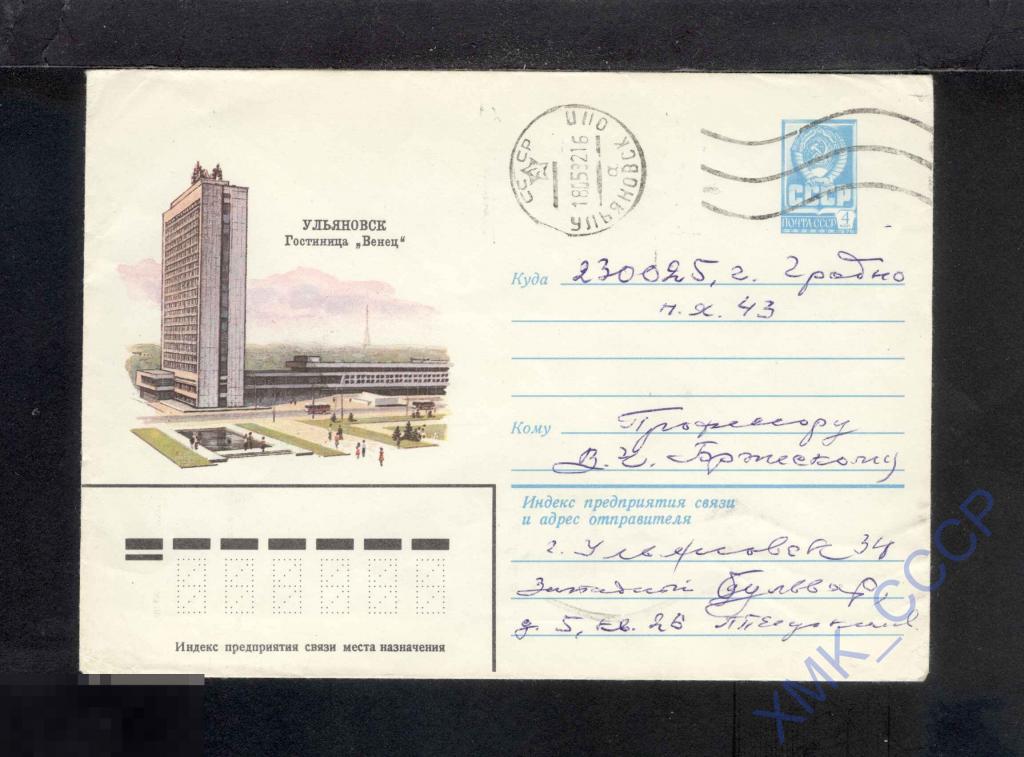 УЛЬЯНОВСК
Гостиница „Венец“
СССР
УЛЬЯНОВСК
ППО
а
18058216
СССР
ПОЧТА СССР
4
Куда 230025, г. Гродно
п. я. 43
Кому Профессору
В. И. Бржескому
Индекс предприятия связи
и адрес отправителя
г. Ульяновск 34
Западный бульвар,
д. 5, кв. 26
Индекс предприятия связи места назначения
ХМК_СССР